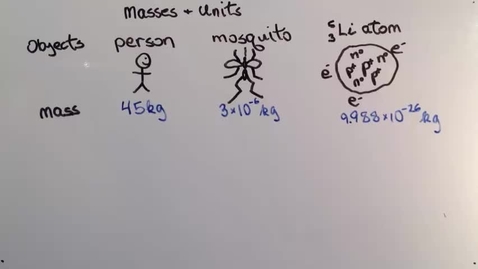 masses + units
Objects person mosquito ⁶₃Li atom
n° n° p⁺ p⁺ n° p⁺ e⁻ e⁻ e⁻
mass 45 kg 3×10⁻⁶ kg 9.988×10⁻²⁶ kg